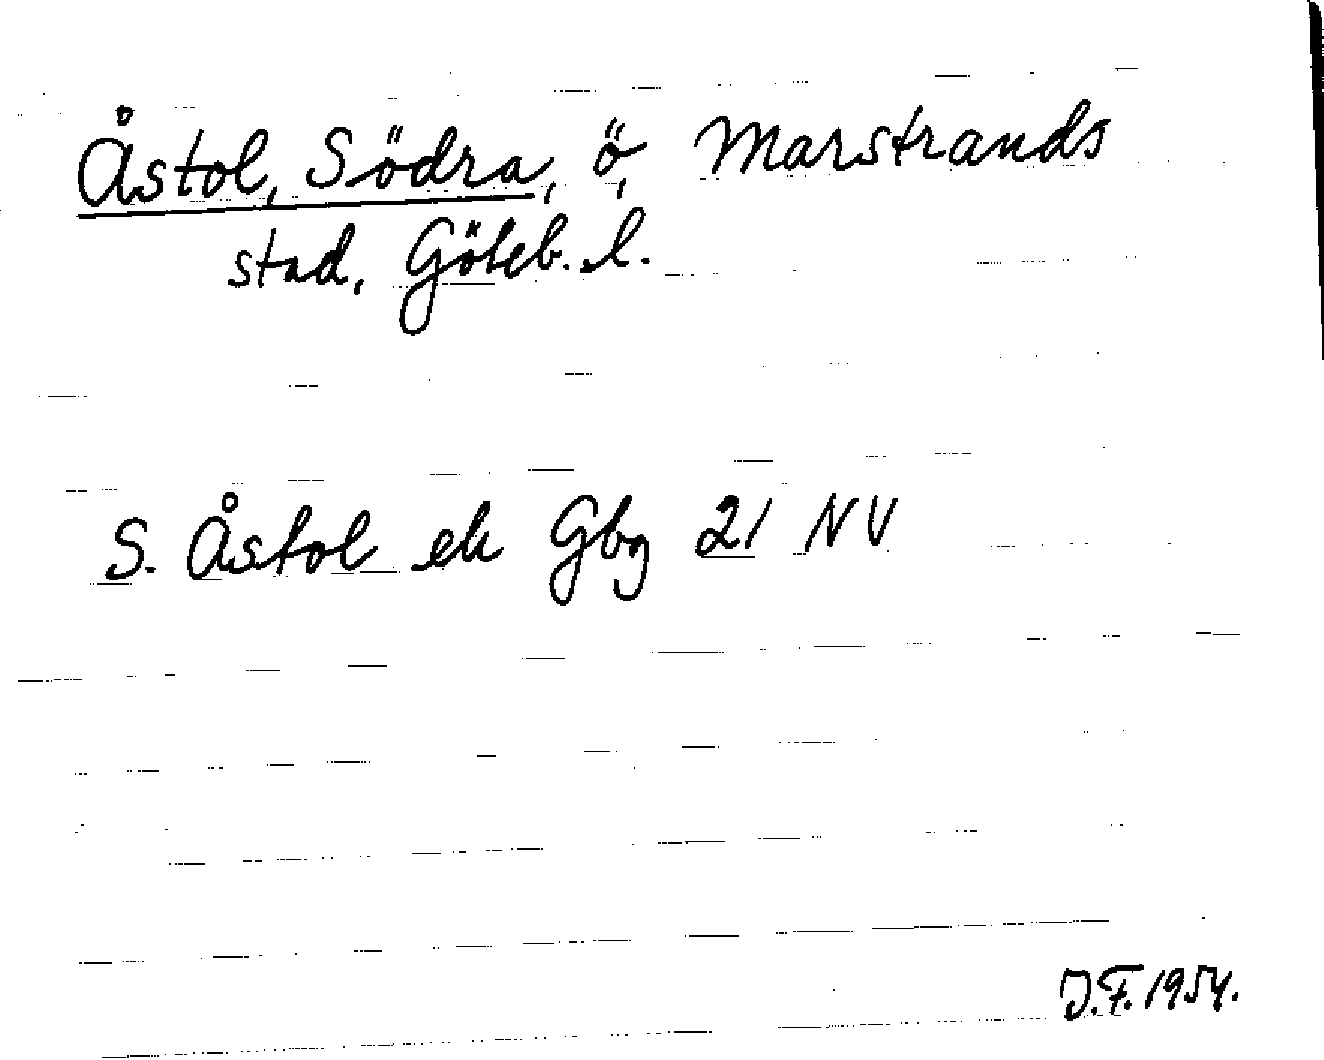 Åstol, Södra, ö, Marstrands
stad, Göteb. l.
S. Åstol ek Gbg 21 NV
J.F. 1954.